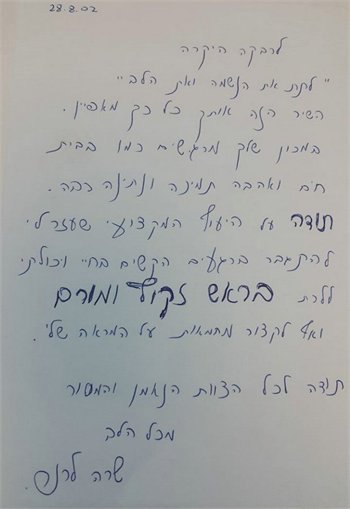 28.8.02
לרבקה היקרה
"לקחת את הנשמה ואת הלב"
השיר הזה אותך כל כך מאפיין.
במכון שלך מרגישים כמו בבית
חום ואהבה תמיכה ונתינה רבה.
תודה על הייעוץ המקצועי שעזר לי
להתגבר ברגעים הקשים בחיי ויכולתי
ללכת בראש זקוף ומורם
ואף לקצור מחמאות על המראה שלי.
תודה לכל הצוות הנאמן והמסור
מכל הלב
שרה